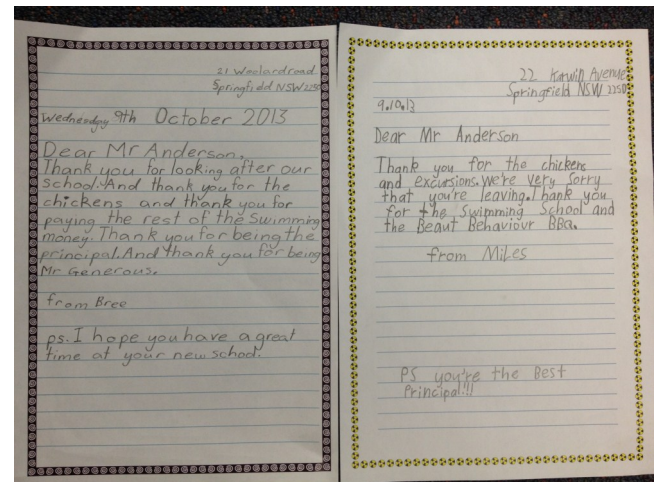 21 Woolard road
Springfield NSW 2250
Wednesday 9th October 2013
Dear Mr Anderson,
Thank you for looking after our
school. And thank you for the
chickens and thank you for
paying the rest of the swimming
money. Thank you for being the
principal. And thank you for being
Mr Generous.
from Bree
ps. I hope you have a great
time at your new school.
22 Avenue
Springfield NSW 2250
9.10.13
Dear Mr Anderson
Thank you for the chickens
and excursions. We're very sorry
that you're leaving. Thank you
for the Swimming School and
the Beaut Behaviour BBQ.
from Miles
PS you're the Best
Principal!!!